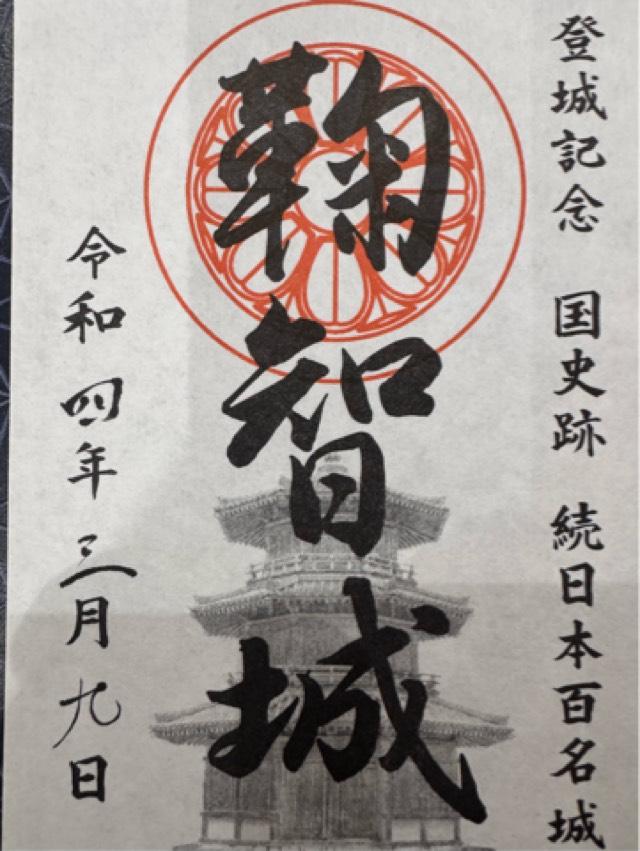 登城記念 国史跡 続日本百名城
鞠智城
令和四年三月九日